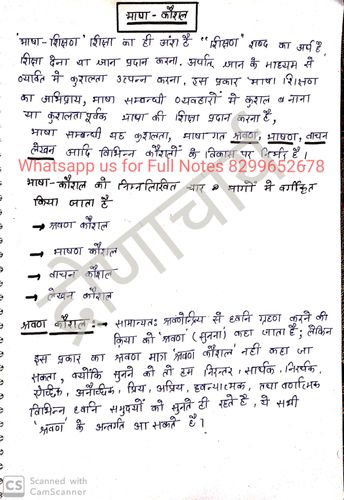 भाषा - कौशल
'भाषा-शिक्षण' शिक्षा का ही अंश है "शिक्षण" शब्द का अर्थ है
शिक्षा देना या ज्ञान प्रदान करना. अर्थात ज्ञान के माध्यम से
व्यक्ति में कुशलता उत्पन्न करना, इस प्रकार 'भाषा शिक्षण
का अभिप्राय, भाषा सम्बन्धी व्यवहारों में कुशल बनाना
या कुशलतापूर्वक भाषा की शिक्षा प्रदान करना है,
भाषा सम्बन्धी यह कुशलता, भाषागत श्रवण, भाषण, वाचन
लेखन आदि विभिन्न कौशलों के विकास पर निर्भर है।
Whatsapp us for Full Notes 8299652678
भाषा-कौशल को निम्नलिखित चार भागों में वर्गीकृत
किया जाता है-
→ श्रवण कौशल
→ भाषण कौशल
→ वाचन कौशल
→ लेखन कौशल
द्रोणाचार्य
श्रवण कौशल :- → सामान्यतः श्रवणेन्द्रिय से ध्वनि ग्रहण करने की
क्रिया को श्रवण (सुनना) कहा जाता है; लेकिन
इस प्रकार का श्रवण मात्र 'श्रवण कौशल' नहीं कहा जा
सकता, क्योंकि सुनने को तो हम निरन्तर, सार्थक, निरर्थक,
ऐच्छिक, अनैच्छिक, प्रिय, अप्रिय, ध्वन्यात्मक, तथा वर्णात्मक
विभिन्न ध्वनि समुच्चयों को सुनते ही रहते है, ये सभी
'श्रवण' के अन्तर्गत आ सकते है।
CS Scanned with
CamScanner